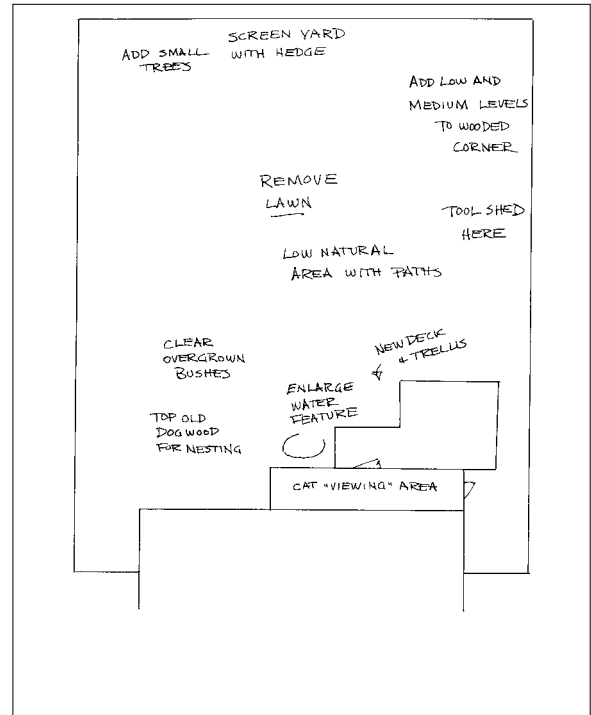 SCREEN YARD
WITH HEDGE
ADD SMALL
TREES
ADD LOW AND
MEDIUM LEVELS
TO WOODED
CORNER
REMOVE
LAWN
TOOL SHED
HERE
LOW NATURAL
AREA WITH PATHS
CLEAR
OVERGROWN
BUSHES
NEW DECK
& TRELLIS
ENLARGE
WATER
FEATURE
TOP OLD
DOGWOOD
FOR NESTING
CAT "VIEWING" AREA